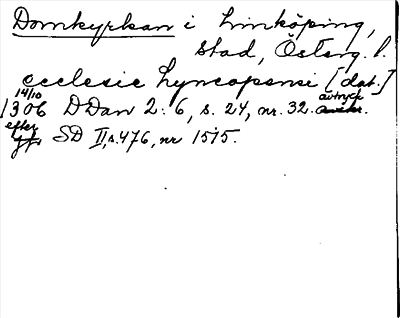 Domkyrkan i Linköping,
stad, Österg. l.
ecclesie Lyncopensi [dat.]
14/10
1306 DDan 2:6, s. 24, nr. 32. avtryck
efter SD II, s. 476, nr 1515.